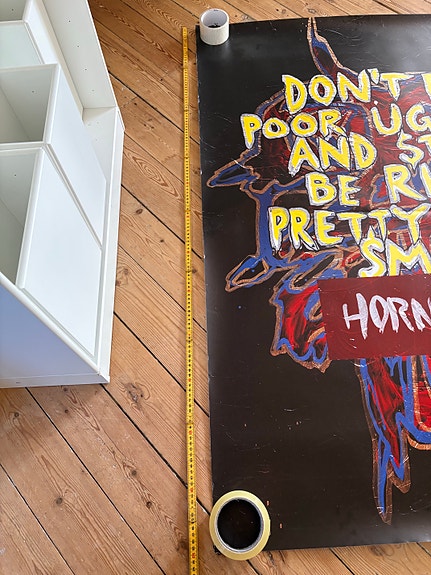 DON'T
POOR UG
AND S
BE RI
PRETTY
SM
HORN